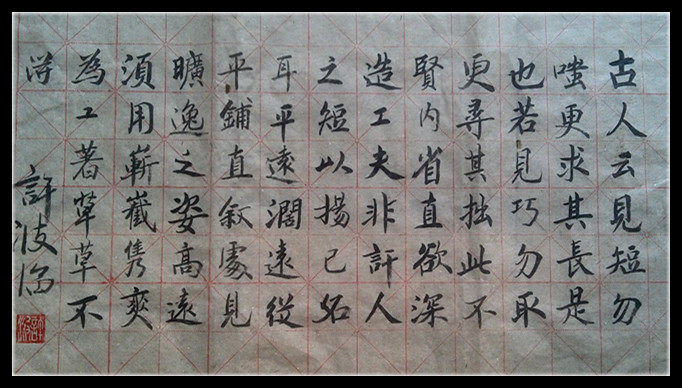 古人云見短勿
嗤更求其長是
也若見巧勿取
更尋其拙此不
賢內省直欲深
造工夫非訐人
之短以揚己名
耳平遠濶遠從
平鋪直敘處見
曠逸之姿高遠
須用嶄巀雋爽
為工著草草不
得
許波临